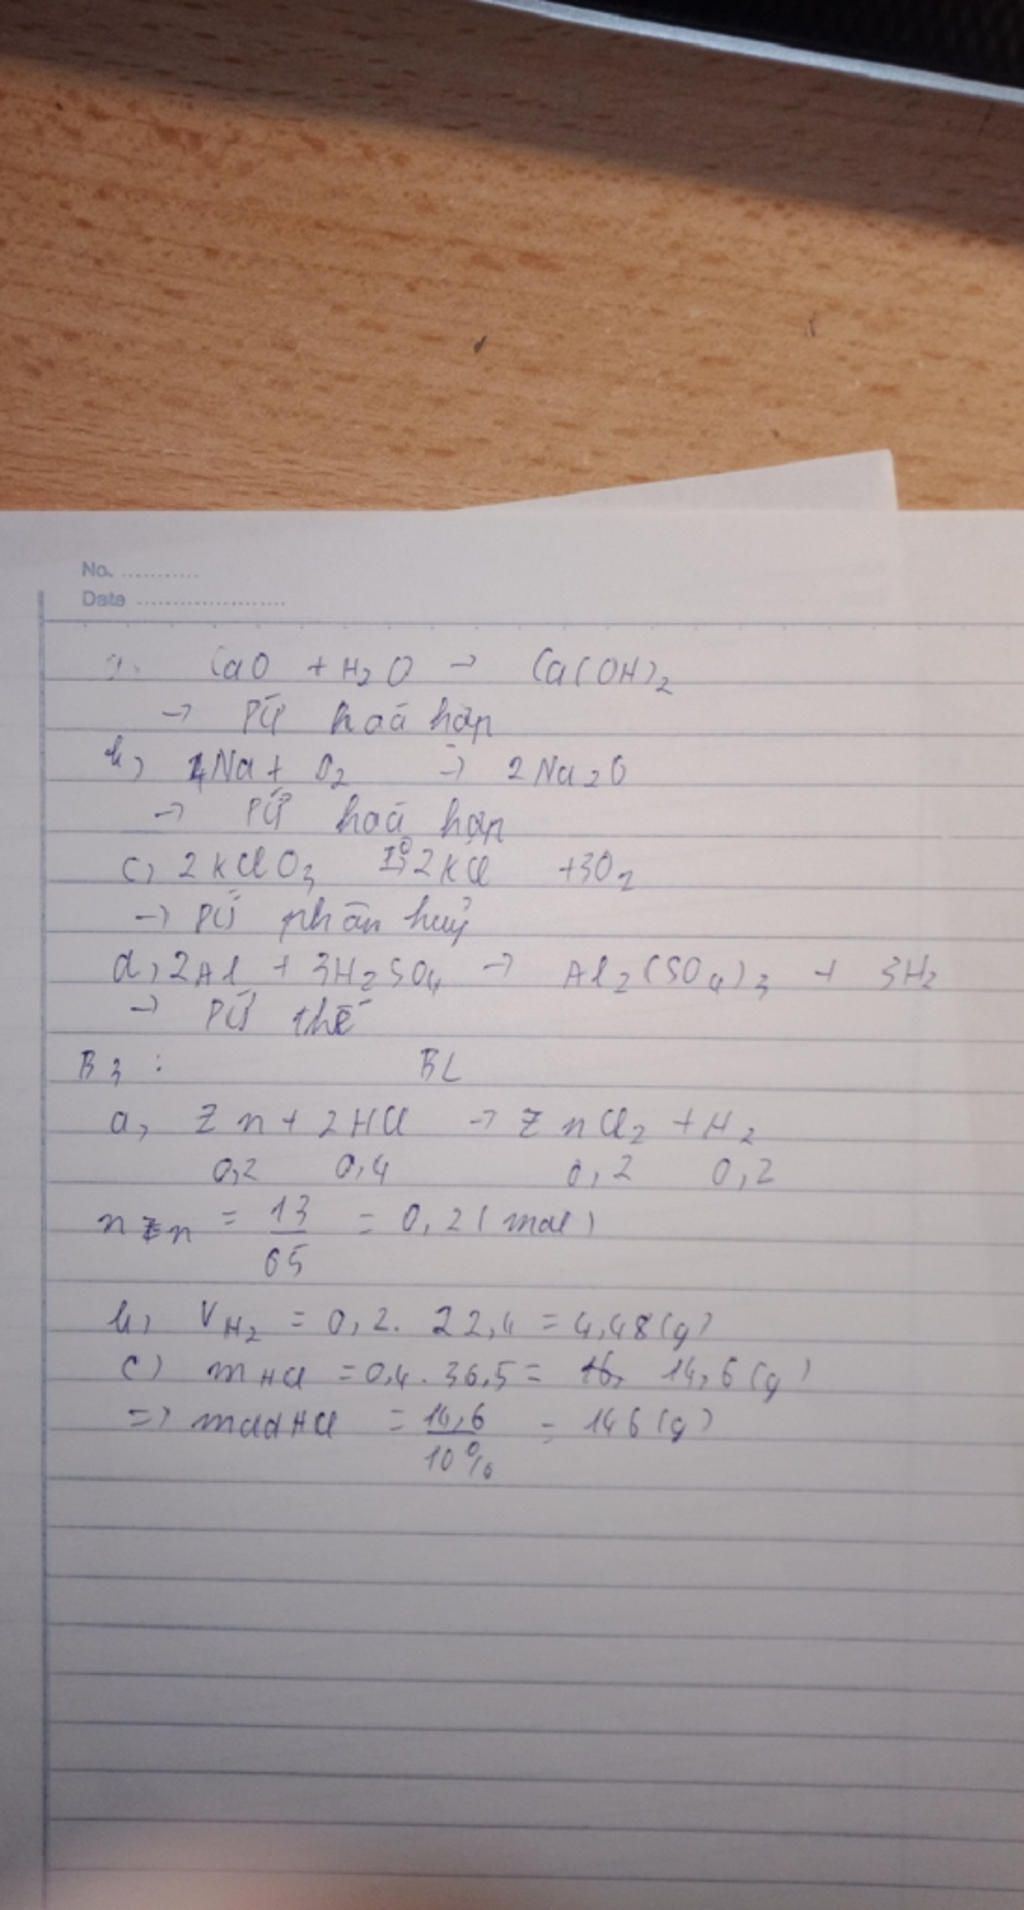 No. ...........
Date ......................
CaO + H2O → Ca(OH)2
→ PỨ hoá hợp
b, 4Na + O2 → 2Na2O
→ PỨ hoá hợp
c, 2KClO3 t°→ 2KCl + 3O2
→ PỨ phân huỷ
d, 2Al + 3H2SO4 → Al2(SO4)3 + 3H2
→ PỨ thế
B3: BL
a, Zn + 2HCl → ZnCl2 + H2
0,2 0,4 0,2 0,2
nZn = 13/65 = 0,2 (mol)
b, VH2 = 0,2. 22,4 = 4,48 (g)
c) mHCl = 0,4. 36,5 = 14,6 (g)
=> mddHCl = 14,6/10% = 146 (g)